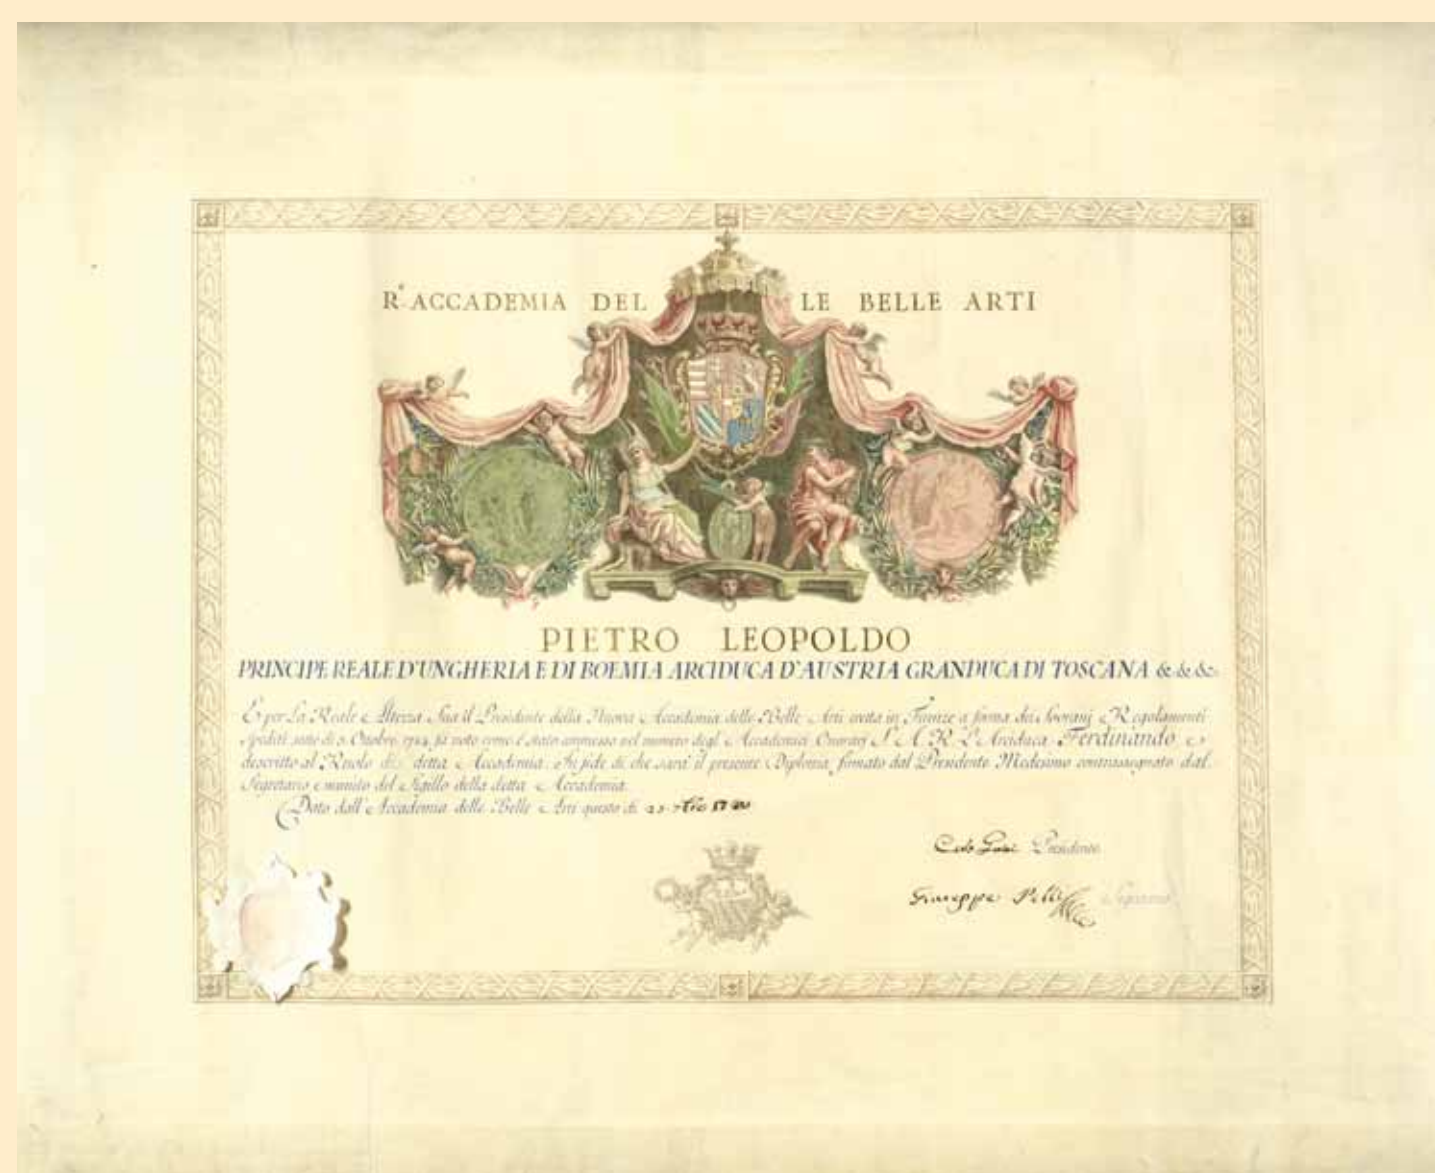 R.ᵉ ACCADEMIA DELLE BELLE ARTI
PIETRO LEOPOLDO
PRINCIPE REALE D'UNGHERIA E DI BOEMIA ARCIDUCA D'AUSTRIA GRANDUCA DI TOSCANA &c &c &c
E per La Reale Altezza Sua il Presidente della Nuova Accademia delle Belle Arti eretta in Firenze a forma dei Sovrani Regolamenti
spediti sotto di 3. Ottobre 1784. fa noto come è stato ammesso nel numero degl' Accademici Onorarj S. A. R. L'Arciduca Ferdinando e
descritto al Ruolo di detta Accademia. In fide di che sarà il presente Diploma firmato dal Presidente Medesimo contrassegnato dal
Segretario e munito del Sigillo della detta Accademia.
Dato dall' Accademia delle Belle Arti questo di 23.
Presidente
Giuseppe Pelli Segretario